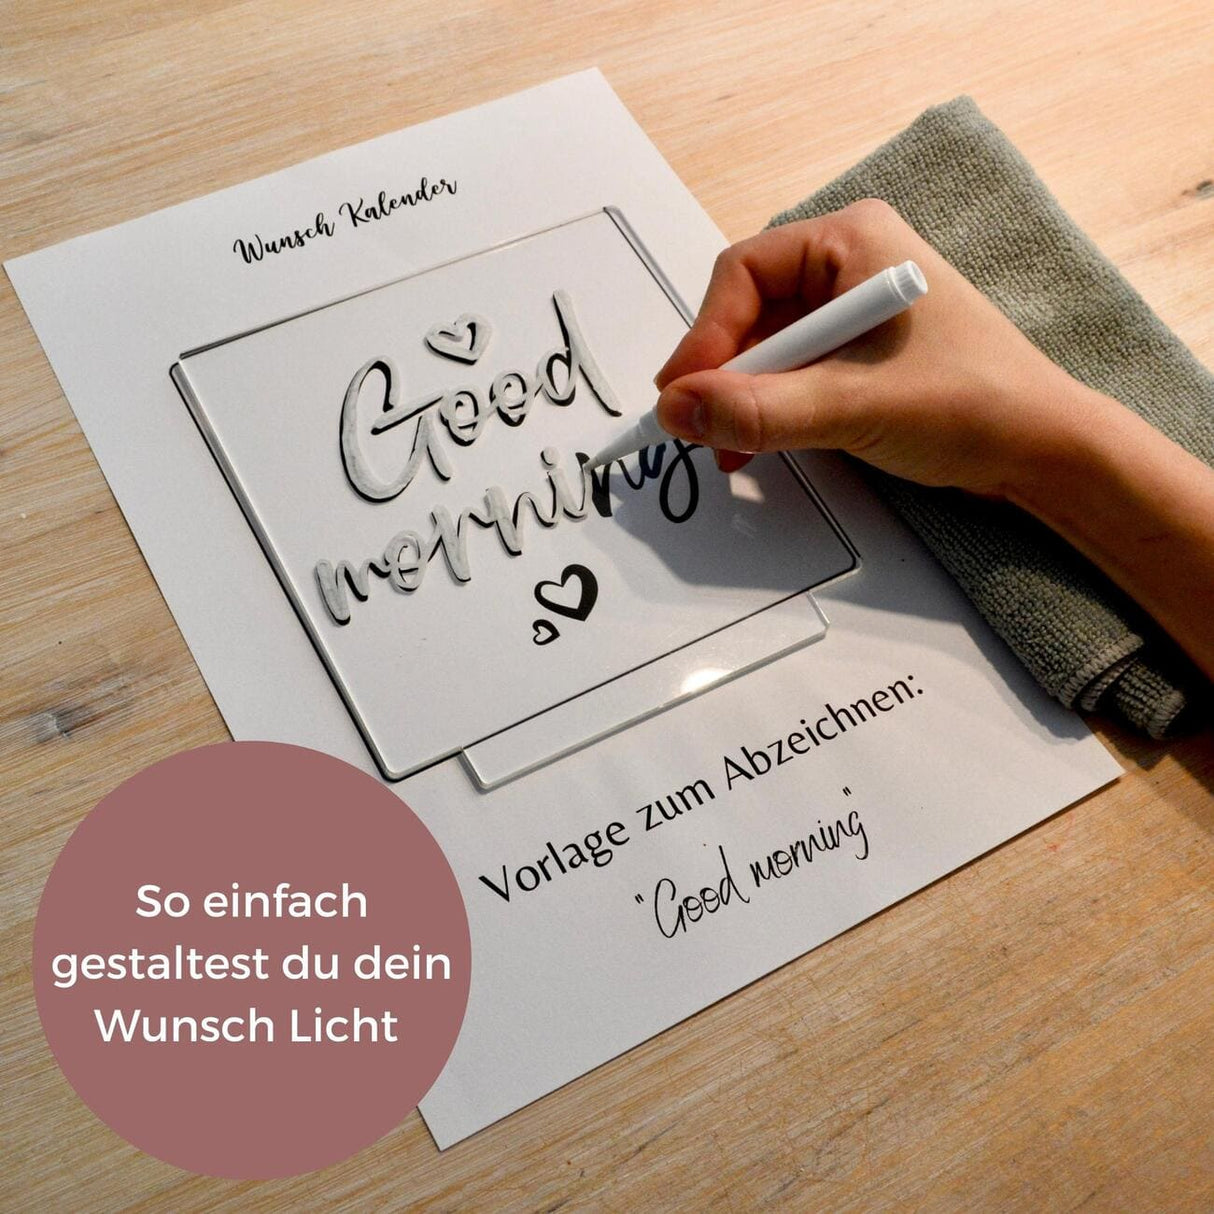 Wunsch Kalender
Good
morning
Vorlage zum Abzeichnen:
"Good morning"
So einfach
gestaltest du dein
Wunsch Licht